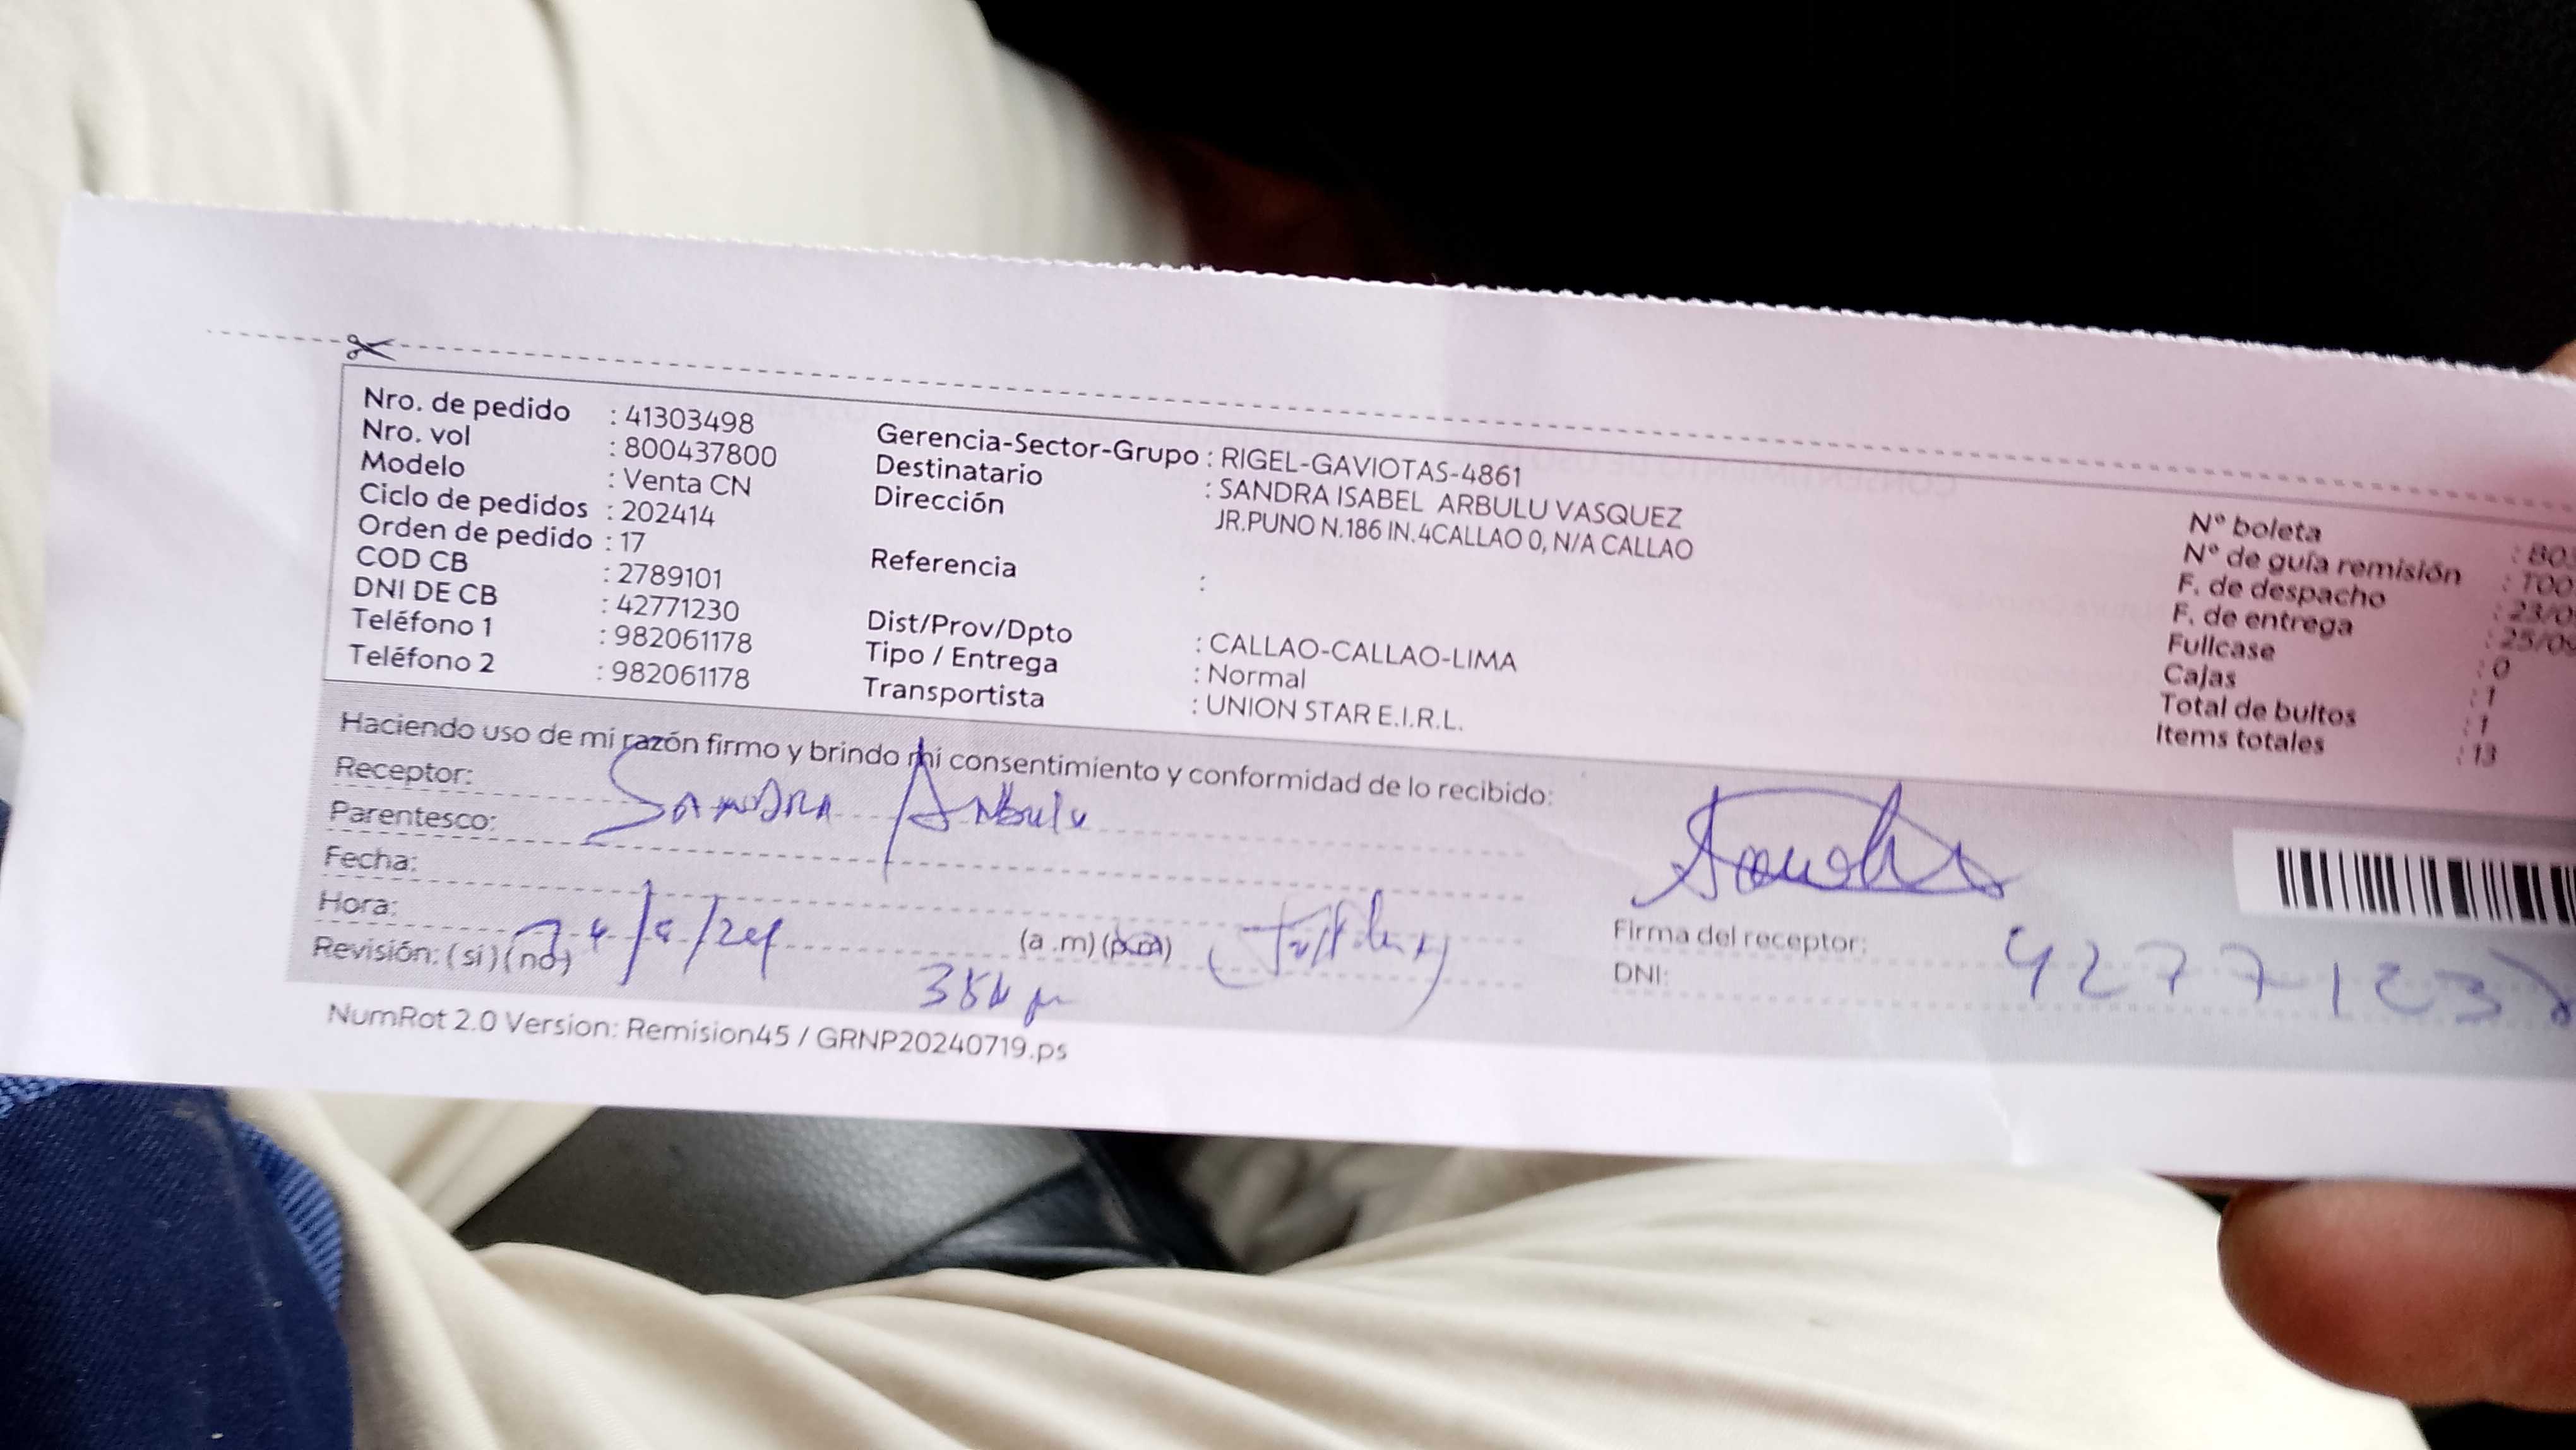 Nro. de pedido : 41303498
Nro. vol : 800437800
Modelo : Venta CN
Ciclo de pedidos : 202414
Orden de pedido : 17
COD CB : 2789101
DNI DE CB : 42771230
Teléfono 1 : 982061178
Teléfono 2 : 982061178
Gerencia-Sector-Grupo : RIGEL-GAVIOTAS-4861
Destinatario : SANDRA ISABEL ARBULU VASQUEZ
Dirección JR.PUNO N.186 IN.4CALLAO 0, N/A CALLAO
Referencia :
Dist/Prov/Dpto : CALLAO-CALLAO-LIMA
Tipo / Entrega : Normal
Transportista : UNION STAR E.I.R.L.
N° boleta : B03
N° de guía remisión : T00
F. de despacho : 23/0
F. de entrega : 25/09
Fullcase : 0
Cajas : 1
Total de bultos : 1
Items totales : 13
Haciendo uso de mi razón firmo y brindo mi consentimiento y conformidad de lo recibido:
Receptor: Sandra Arbulu
Parentesco:
Fecha:
Hora: (a .m) (p.m)
Revisión: ( si ) ( no )
Firma del receptor:
DNI: 42771230
NumRot 2.0 Version: Remision45 / GRNP20240719.ps